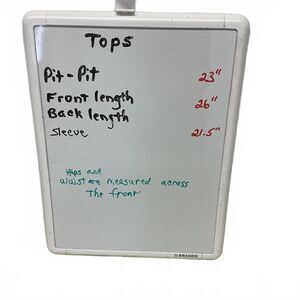 Tops
Pit-Pit 23"
Front length 26"
Back length
Sleeve 21.5"
Hips and
waist are measured across
The front
U BRANDS